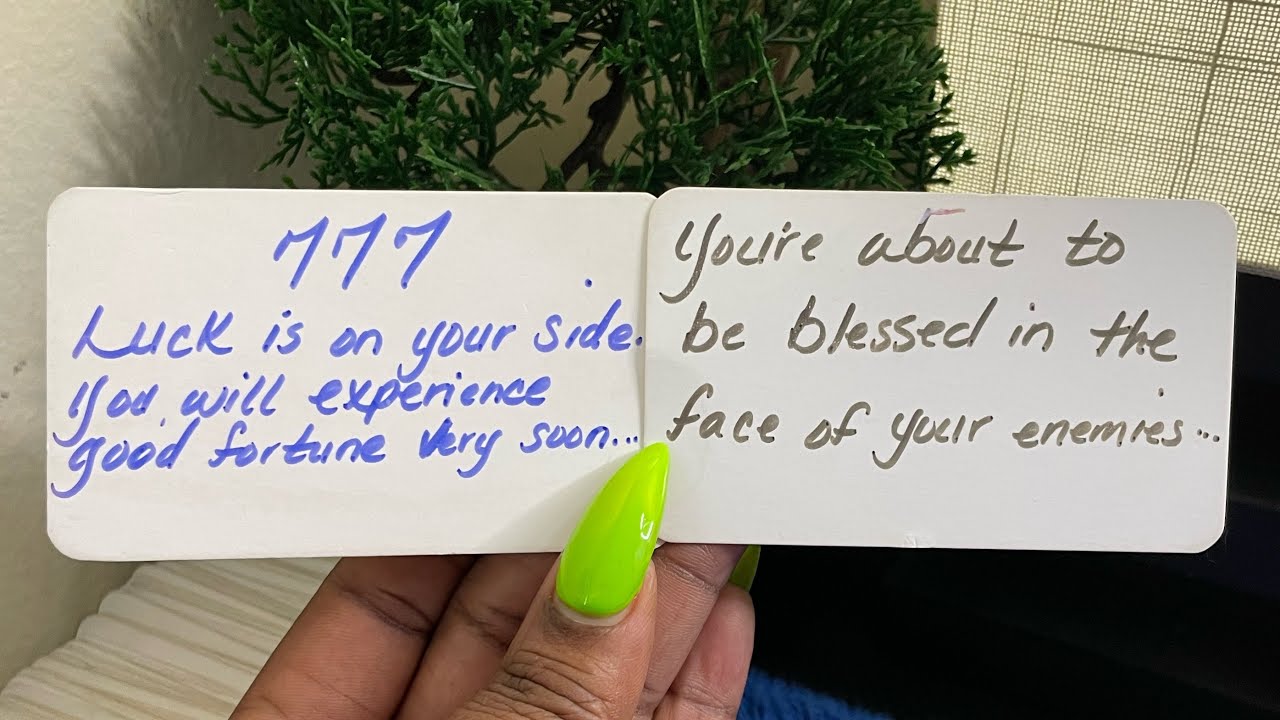 777
Luck is on your side.
You will experience
good fortune very soon...
You're about to
be blessed in the
face of your enemies...